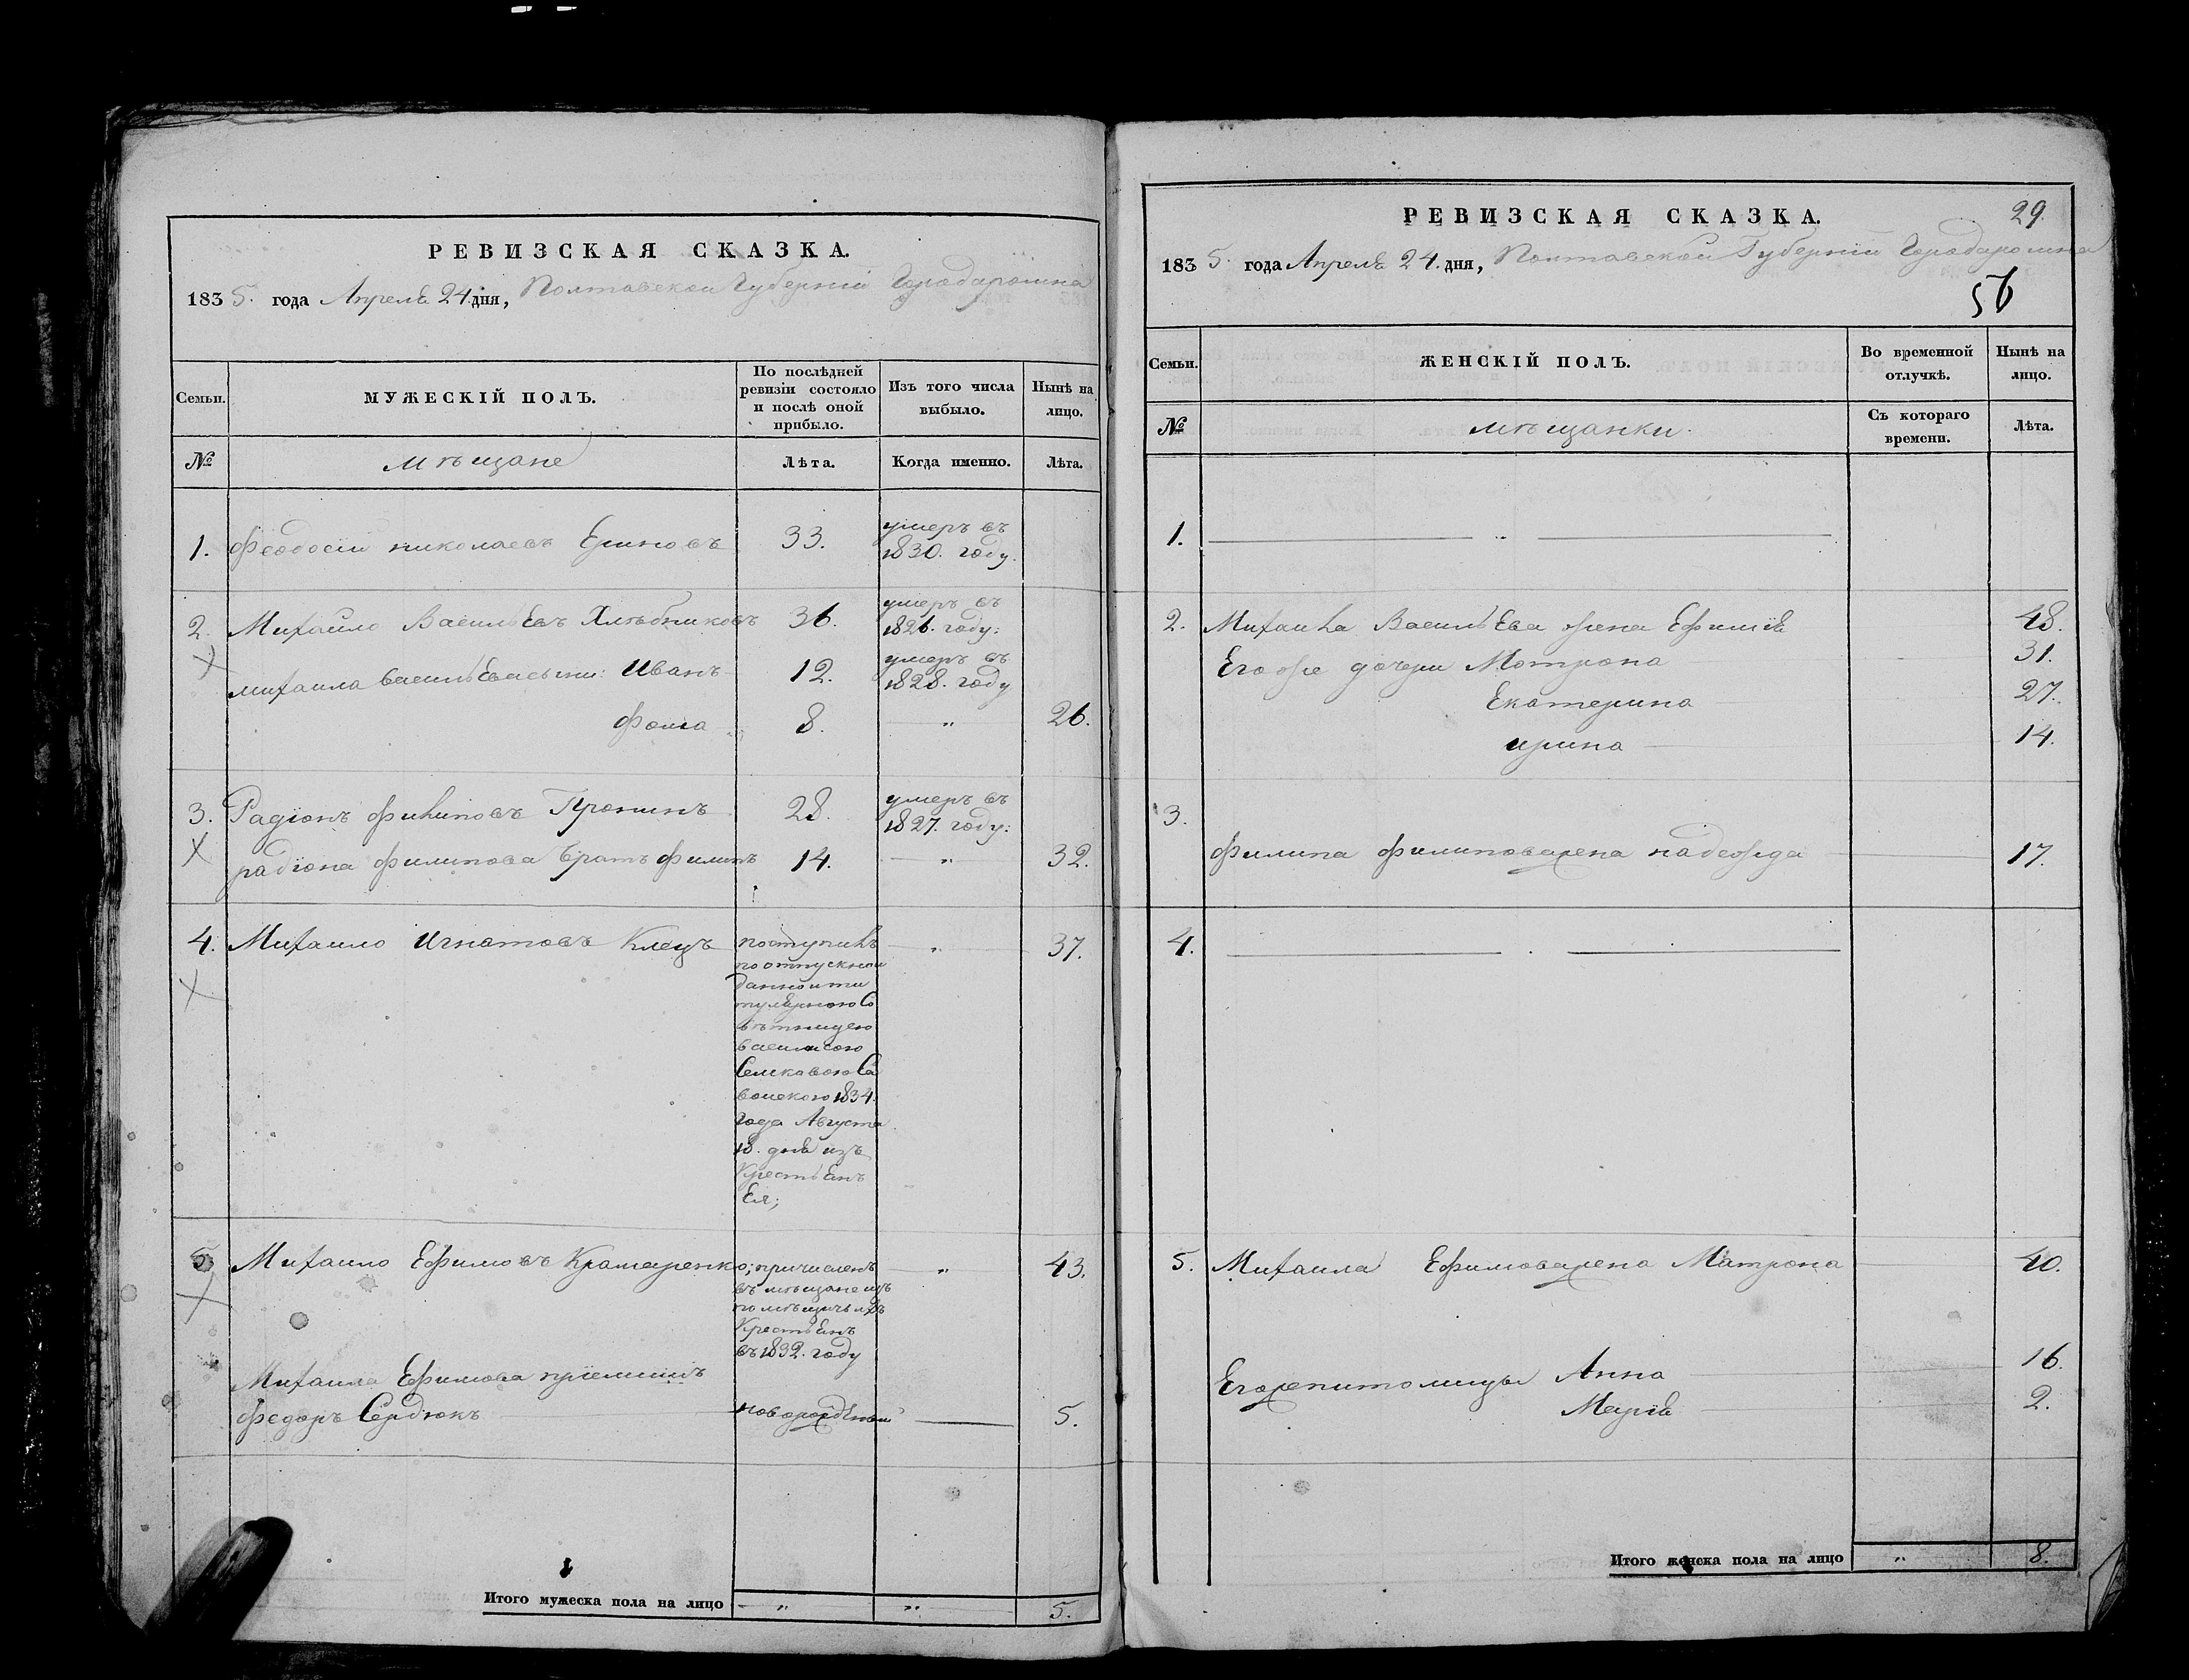 РЕВИЗСКАЯ СКАЗКА.
1835. года Апреля 24. дня, Полтавской Губерніи
Семьи.
МУЖЕСКІЙ ПОЛЪ.
По послѣдней ревизіи состояло и послѣ оной прибыло.
Изъ того числа выбыло.
Нынѣ на лицо.
№
мѣщане
Лѣта.
Когда именно.
Лѣта.
1. Феодосій николаевъ 33. умеръ въ 1830. году.
2. Михайло Васильевъ Хлѣбниковъ 36. умеръ въ 1826. году:
михаила васильева сыни: Иванъ 12. умеръ въ 1828. году
фома 8. „ 26.
3. Радіонъ филиповъ Пронинъ 28. умеръ въ 1827. году:
радіона филипова братъ филипъ 14. „ 32.
4. Михаило игнатовъ Клецъ
поступилъ
по отпускной
данной ти
тулярною Со
вѣтницею
василисою
Селиковою Са
вонскою 1834.
года Августа
18. дня изъ
Крестьянъ
Ея;
„ 37.
5. Михаило Ефимовъ Крамаренко;
причисленъ
въ мѣщане изъ
помѣщичьихъ
Крестьянъ
въ 1832. году
„ 43.
Михаила Ефимова пріемишъ
федоръ Сердюкъ новорожденный 5.
Итого мужеска пола на лицо „ „ 5.
РЕВИЗСКАЯ СКАЗКА.
29.
1835. года Апреля 24. дня, Полтавской Губерніи
56
Семьи.
ЖЕНСКІЙ ПОЛЪ.
Во временной отлучкѣ.
Нынѣ на лицо.
№
мѣщанки.
Съ котораго времени.
Лѣта.
1. „
2. Михаила Васильева жена Ефимія 48.
Его же дочери Мотрона 31.
Екатерина 27.
ирина 14.
3.
филипа филипова жена надежда 17.
4.
5. Михаила Ефимова жена Матрона 40.
Его же питомицы Анна 16.
Марія 2.
Итого женска пола на лицо „ 8.